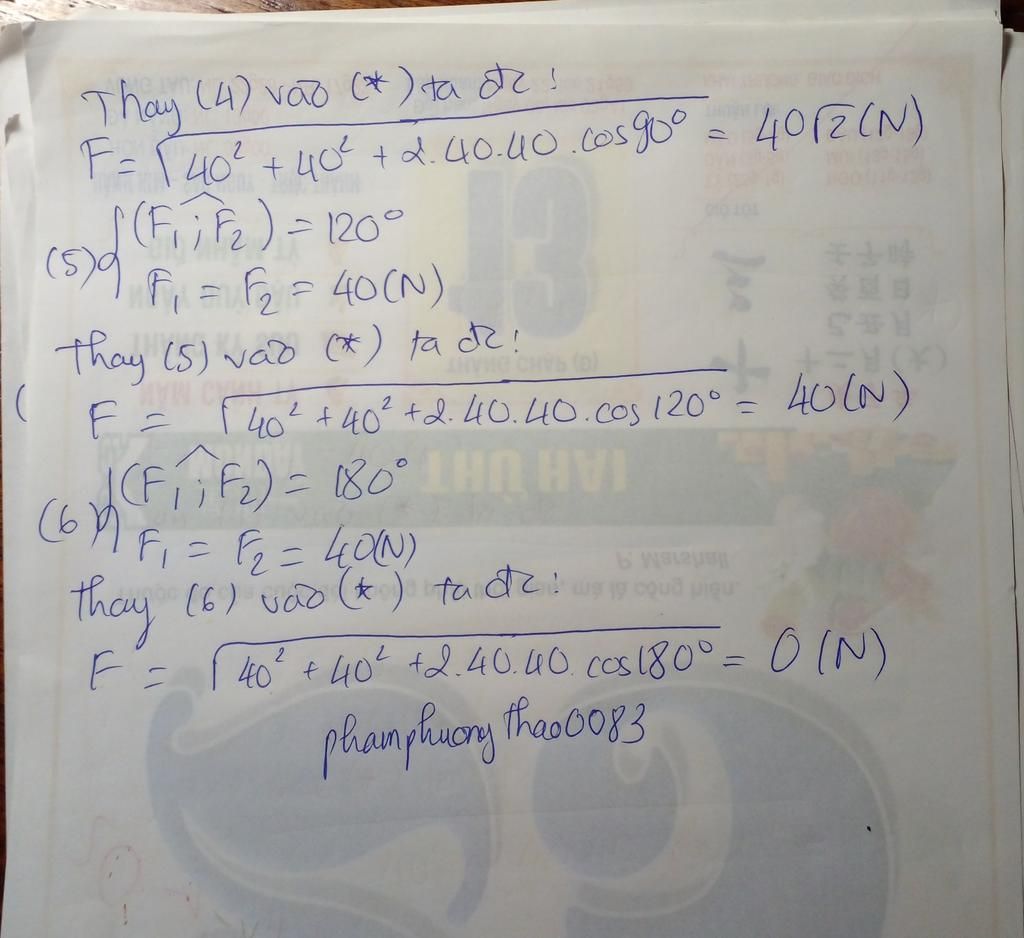 Thay (4) vào (*) ta đc:
F = √40² + 40² + 2.40.40.cos90° = 40√2 (N)
(5) { (F₁; F₂) = 120°
F₁ = F₂ = 40(N)
Thay (5) vào (*) ta đc:
F = √40² + 40² + 2.40.40.cos120° = 40(N)
(6) { (F₁; F₂) = 180°
F₁ = F₂ = 40(N)
Thay (6) vào (*) ta đc:
F = √40² + 40² + 2.40.40.cos180° = 0 (N)
phamphuongthao0083
13
THÁNG CHẠP (Đ)
THỨ HAI
P. Marshall